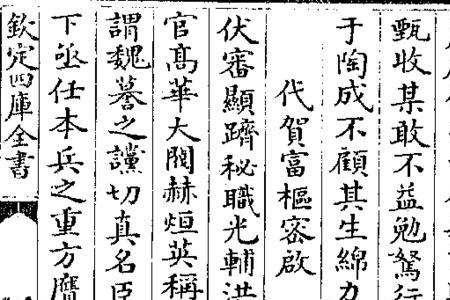 甄收某敢不益勉駑行
于陶成不顧其生綿力
代賀富樞密啟
伏審顯躋秘職光輔洪
官髙華大閥赫烜英稱
謂魏謩之讜切真名臣
下亟任本兵之重方膺
欽定四庫全書